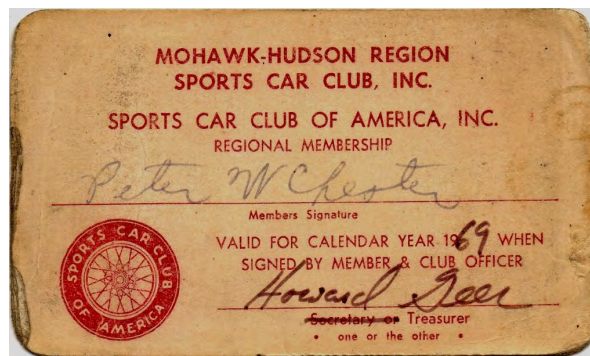 MOHAWK-HUDSON REGION
SPORTS CAR CLUB, INC.
SPORTS CAR CLUB OF AMERICA, INC.
REGIONAL MEMBERSHIP
Peter W Chester
Members Signature
SPORTS CAR CLUB
OF AMERICA
VALID FOR CALENDAR YEAR 1969 WHEN
SIGNED BY MEMBER & CLUB OFFICER
Howard Geer
Secretary or Treasurer
• one or the other •